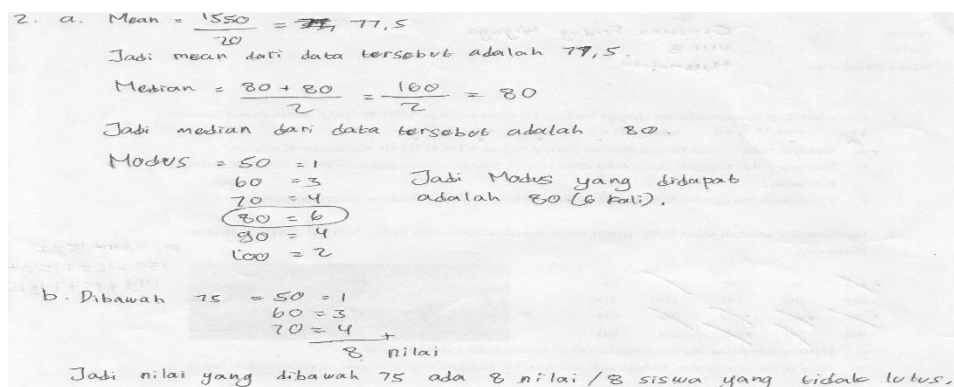 2. a. Mean = 1550/20 = 77,5
Jadi mean dari data tersebut adalah 77,5.
Median = 80 + 80/2 = 160/2 = 80
Jadi median dari data tersebut adalah 80.
Modus = 50 = 1
60 = 3 Jadi Modus yang didapat
70 = 4 adalah 80 (6 kali).
80 = 6
90 = 4
100 = 2
b. Dibawah 75 = 50 = 1
60 = 3
70 = 4 +
8 nilai
Jadi nilai yang dibawah 75 ada 8 nilai / 8 siswa yang tidak lulus.